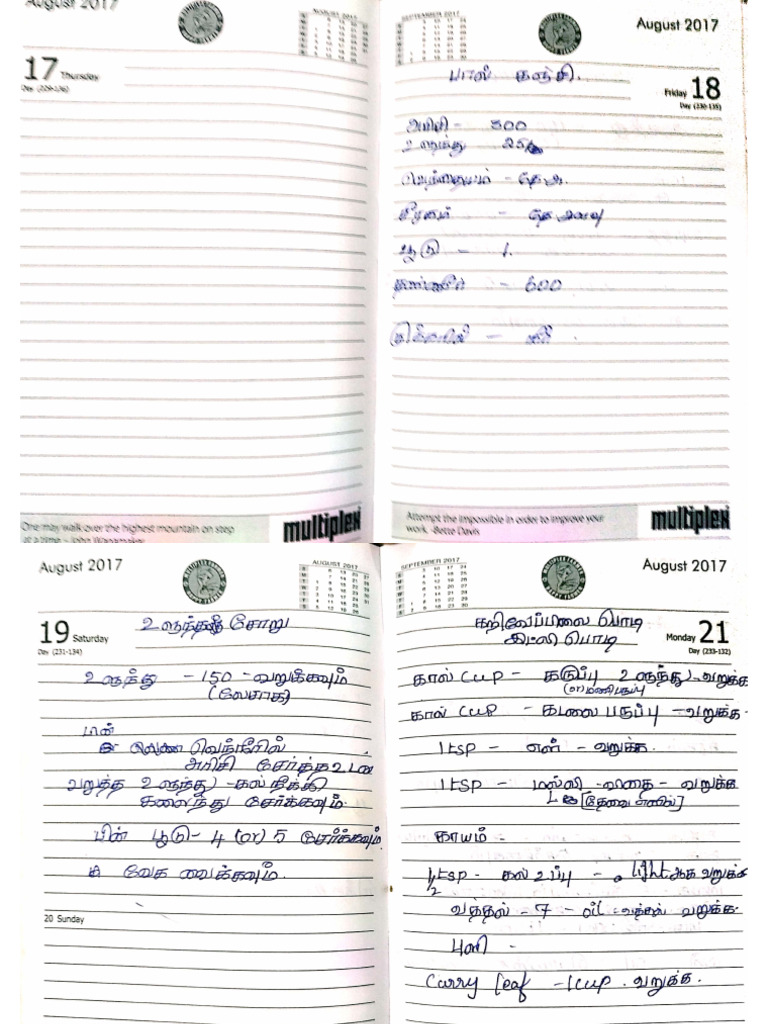 August 2017
AUGUST 2017
17 Thursday
Day (229-136)
One may walk over the highest mountain on step
at a time - John Wanamaker
multiplex
SEPTEMBER 2017
August 2017
Friday 18
Day (230-135)
பால் கஞ்சி.
அரிசி - 300
உளுந்து 25
வெந்தையம் - தே.அ.
சீரகம் - தே அளவு
பூடு - 1.
தண்ணீர் - 600
Attempt the impossible in order to improve your
work. -Bette Davis
multiplex
August 2017
AUGUST 2017
19 Saturday
Day (231-134)
உளுந்தஞ் சோறு
உளுந்து - 150 - வறுக்கவும்
(லேசாக)
பின்
வெந்நீரில்
அரிசி சேர்த்தஉடன்
வறுத்த உளுந்து கல்நீக்கி
களைந்து சேர்க்கவும்.
பின் பூடு - 4 (or) 5 சேர்க்கவும்
வேக வைக்கவும்.
20 Sunday
SEPTEMBER 2017
August 2017
Monday 21
Day (233-132)
கறிவேப்பிலை பொடி
இட்லி பொடி
கால் Cup - கருப்பு உளுந்து - வறுக்க
(or) மணிபருப்பு
கால் Cup - கடலை பருப்பு - வறுக்க.
1tsp - எள் - வறுக்க.
1tsp - மல்லி - விதை - வறுக்க
[தேவை எனில்]
காயம் -
1/2 tsp - கல் உப்பு - light ஆக வறுக்க
வத்தல் - 7 - oil - வத்தல் வறுக்க.
புளி -
Curry leaf - 1cup. வறுக்க.